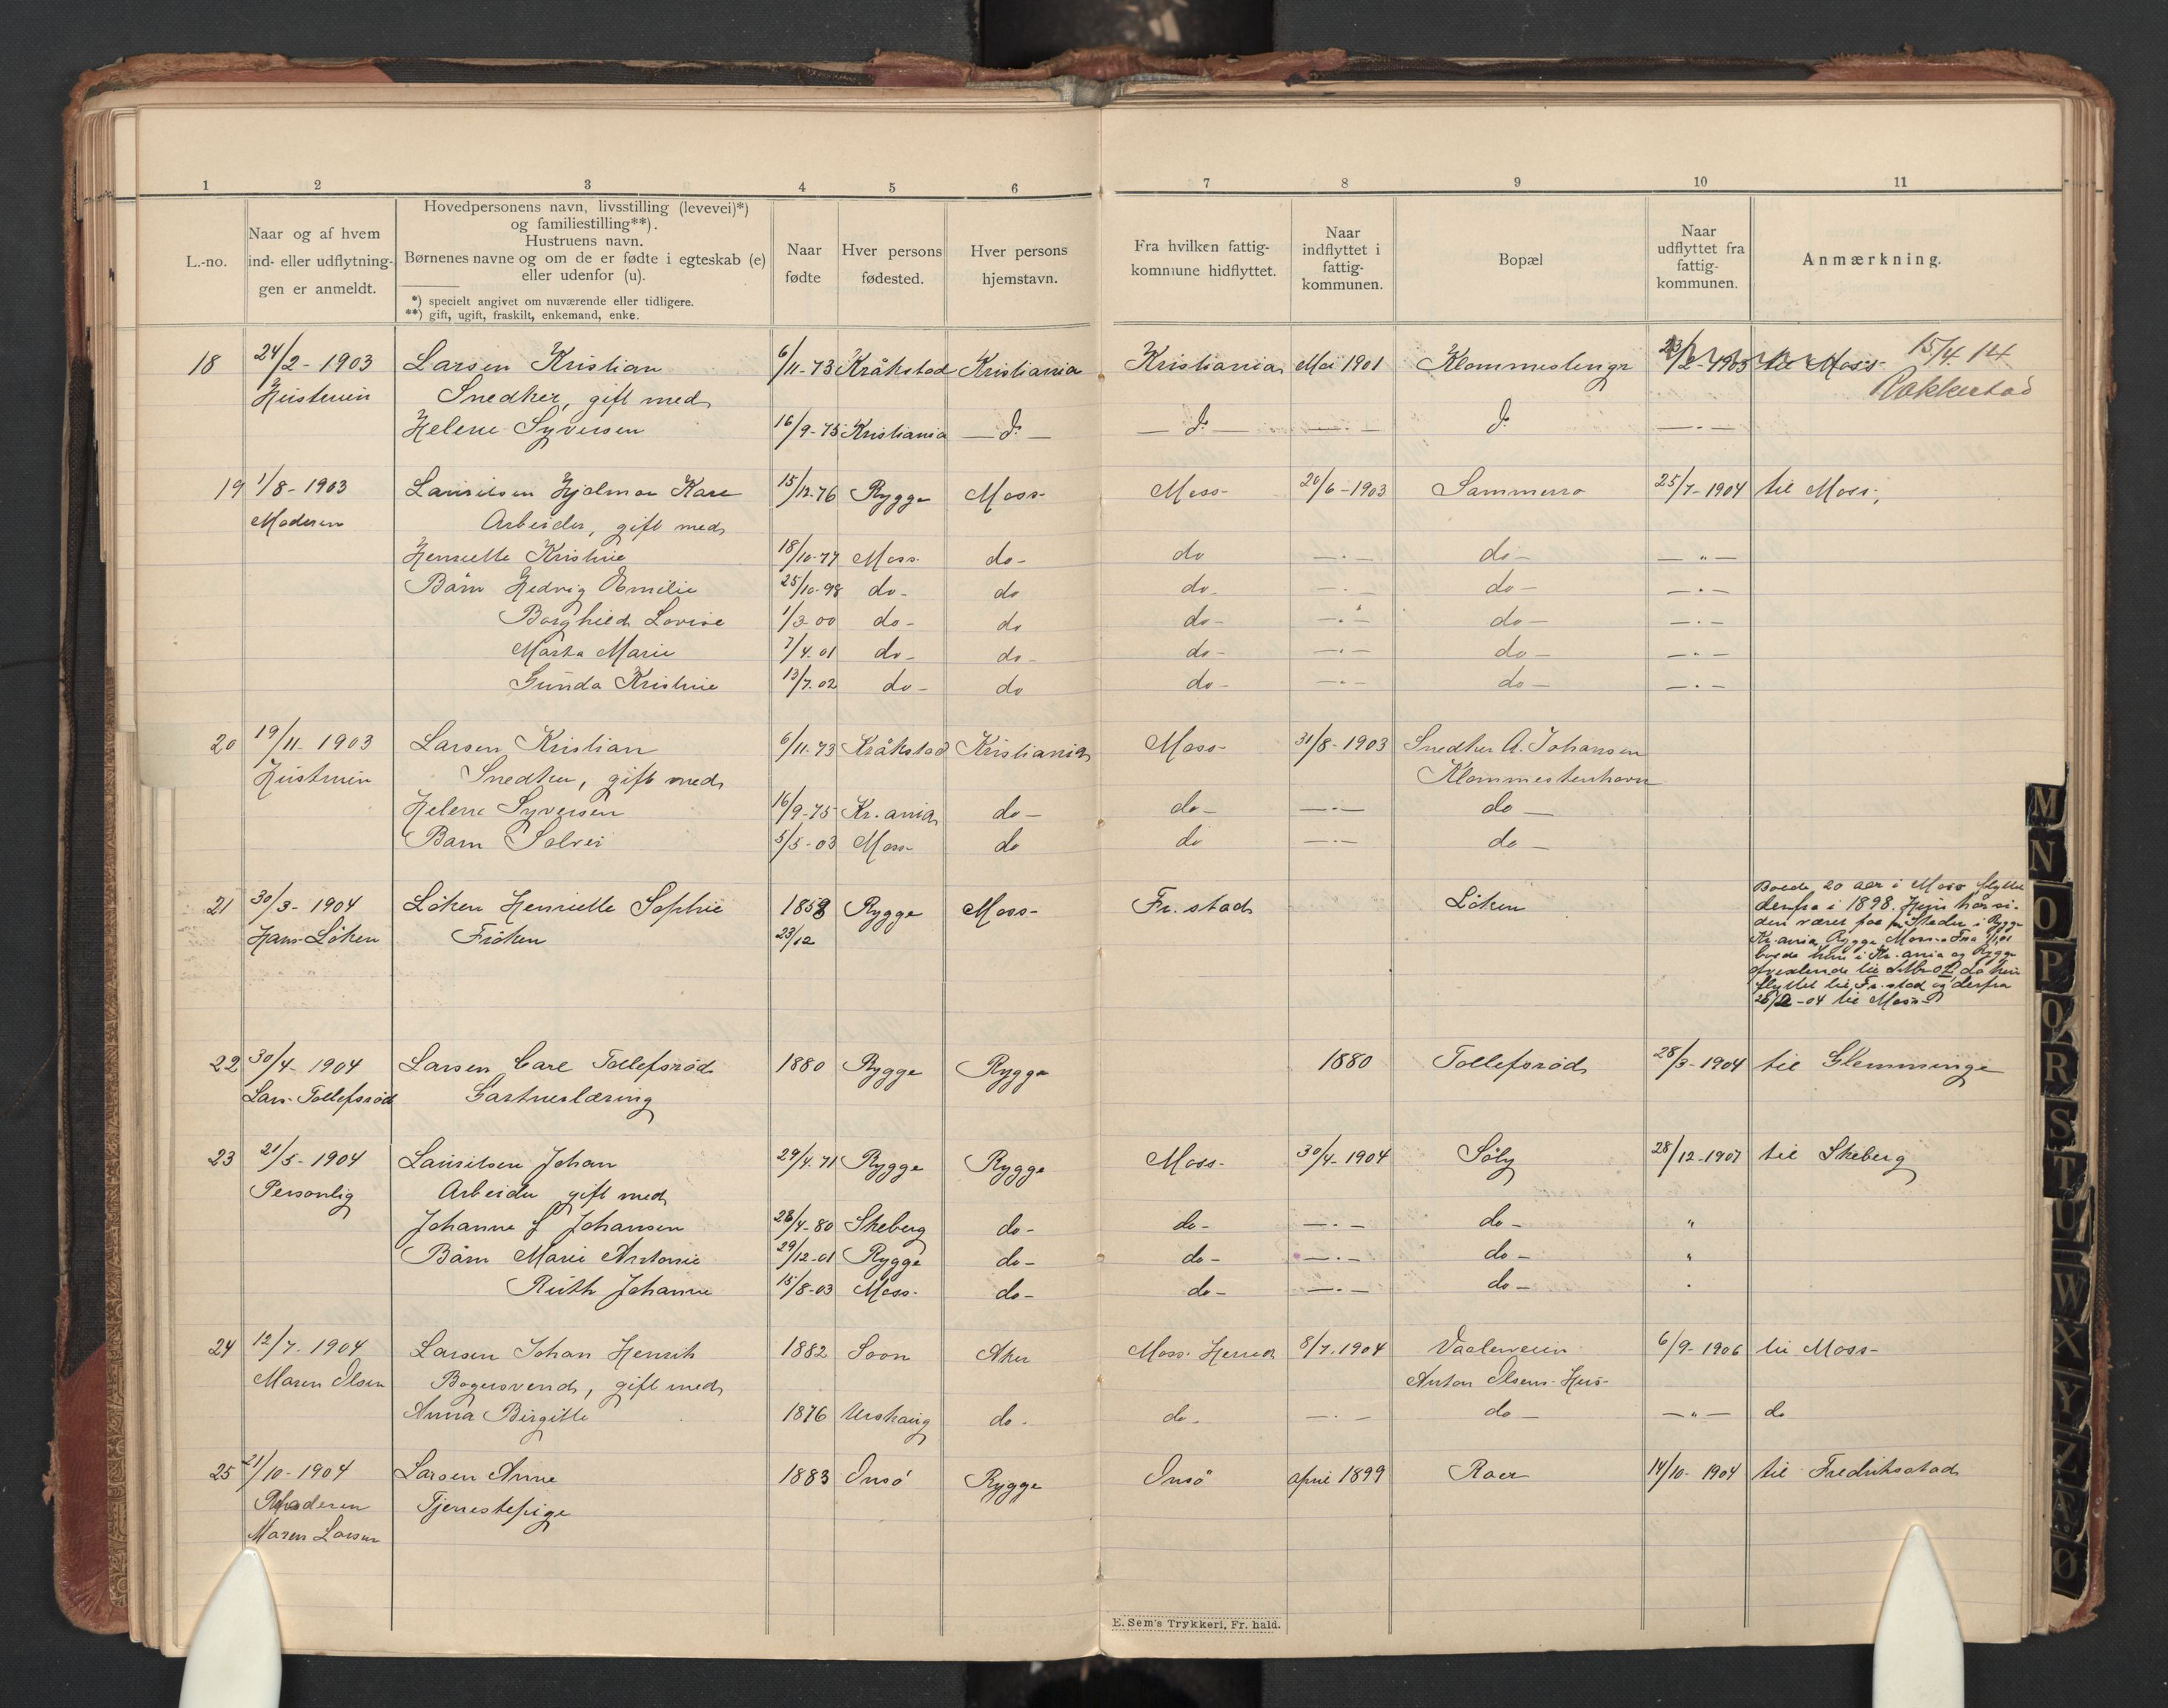 1 2 3 4 5 6 7 8 9 10 11
L.-no. Naar og af hvem ind- eller udflytnin- gen er anmeldt.
Hovedpersonens navn, livsstilling (levevei)*)
og familiestilling**).
Hustruens navn.
Børnenes navne og om de er fødte i egteskab (e)
eller udenfor (u).
*) specielt angivet om nuværende eller tidligere.
**) gift, ugift, fraskilt, enkemand, enke.
Naar fødte
Hver persons fødested.
Hver persons hjemstavn.
Fra hvilken fattig-
kommune hidflyttet.
Naar
indflyttet i
fattig-
kommunen.
Bopæl
Naar
udflyttet fra
fattig-
kommunen.
Anmærkning.
18 24/2 - 1903 Larsen Kristian 6/11-73 Kråkstad Kristiania Kristiania Mai 1901 23/2-1903 til Moss- 15/4. 14
Hustruen Snedker, gift med Rakkestad
Helene Syversen 16/9-75 Kristiania — d. — — d. — — . — d. — . —
19 1/8 - 1903 Lauritsen Hjalmar Kare 15/12-76 Rygge Moss- Moss- 20/6-1903 Sammerro 25/7-1904 til Moss,
Moderen Arbeider, gift med
Henriette Kristine 18/10-77 Moss. do- do — . — do- — " —
Børn Hedvig Emilie 25/10-98 do- do do- — . — do — — . —
Borghild Lovise 1/3-00 do- do do- — . — do — — . —
Marta Marie 7/4.01 do- do- do- — . — do — — . —
Gunda Kristine 13/7.02 do- do do- — . — do — — . —
20 19/11-1903 Larsen Kristian 6/11-73 Kråkstad Kristiania Moss- 31/8-1903 Snedker A. Johansen
Hustruen Snedker, gift med
Helene Syversen 16/9-75 Kr.ania do — do- — . — do —
Barn Solvei 5/5-03 Moss do do — . — do —
21 30/3-1904 Löken Henriette Sophie 1858 Rygge Moss- Fr. stad Löken
Hans Löken Fröken 23/12
Boede 20 aar i Moss flyttet
derfra i 1898. Hun har si-
den været paa Steder i Rygge
Kr.ania Rygge Moss. Fra
boede hun i Kr.ania og Rygge
da hun
flyttet til Fr.stad og derfra
-04 til Moss-
22 30/4-1904 Larsen Carl Tollefsröd 1880 Rygge Rygge 1880 Tollefsröd 28/3-1904 til Glemminge
Lars Tollefsröd Gartnerlæring
23 21/5-1904 Lauritsen Johan 29/4.71 Rygge Rygge Moss- 30/4-1904 Söly 28/12-1907 til Skeberg
Personlig Arbeider gift med
Johanne J Johansen 28/4-80 Skeberg do- do- — . — do- "
Børn Marie Antonie 29/12-01 Rygge do- do- — . — do- "
Ruth Johanne 15/8-03 Moss- do- do- — . — do-
24 12/7.1904 Larsen Johan Henrik 1882 Soon Aker Moss. Herred 8/7.1904 Vaalerveien 6/9-1906 til Moss-
Maren Olsen Bagersvend, gift med Anton Olsens Hus-
Anna Birgitte 1876 Urskaug do- do- — . — do — — " — do
25 21/10-1904 Larsen Anne 1883 Onsö Rygge Onsö april 1899 Roer 14/10-1904 til Fredrikstad
Tjenestepige
Maren Larsen
E. Sem's Trykkeri, Fr. hald.
M
N
O
P
Q
R
S
T
U
W
X
Y
Z
Æ
Ø